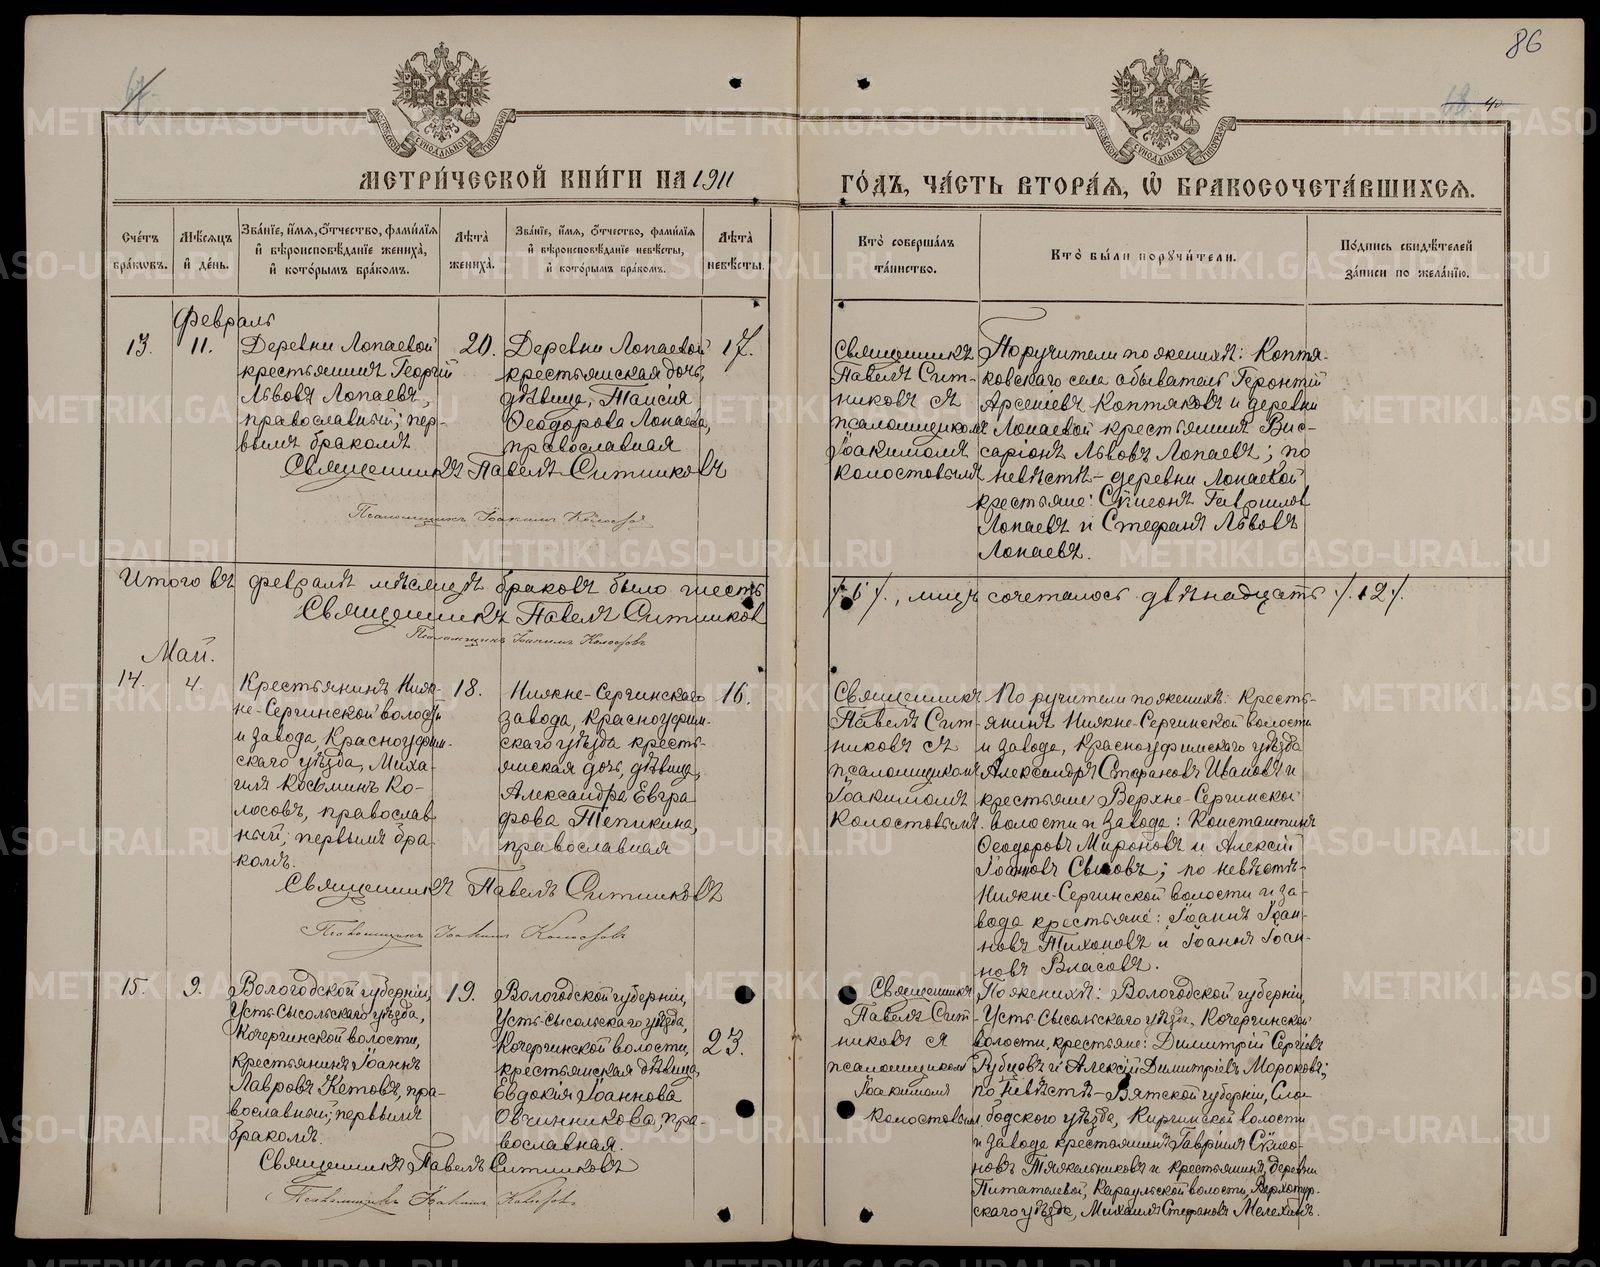 86
МЕТРИ́ЧЕСКОЙ КНИ́ГИ НА 1911
ГО́ДЪ, ЧА́СТЬ ВТОРА́Ѧ, Ѡ҆ БРАКОСОЧЕТА́ВШИХСѦ.
Сче́тъ
бра́ковъ.
Мѣ́сѧцъ
и҆ де́нь.
Зва́нїе, и҆́мѧ, ѻ҆́тчество, фами́лїѧ
и҆ вѣроисповѣ́данїе жениха̀,
и҆ кото́рымъ бра́комъ.
Лѣ́та
жениха̀.
Зва́нїе, и҆́мѧ, ѻ҆́тчество, фами́лїѧ
и҆ вѣроисповѣ́данїе невѣ́сты,
и҆ кото́рымъ бра́комъ.
Лѣ́та
невѣ́сты.
Кто̀ соверша́лъ
та́инство.
Кто̀ бы́ли порꙋчи́тели.
По́дпись свидѣ́телей
за́писи по жела́нїю.
Февраль
13.
11.
Деревни Лопаевой
крестьянинъ Георгій
Львовъ Лопаевъ,
православный; пер-
вымъ бракомъ
20.
Деревни Лопаевой
крестьянская дочь,
дѣвица, Таисія
Ѳеодорова Лопаева,
православная
17.
Священникъ Павелъ Ситниковъ
Псаломщикъ Іоакимъ
Священникъ
Павелъ Сит-
никовъ съ
псаломщикомъ
Іоакимомъ
Поручители по женихѣ: Коптя-
ковскаго села обыватель Геронтій
Арсеніевъ Коптяковъ и деревни
Лопаевой крестьянинъ Вис-
саріонъ Львовъ Лопаевъ; по
невѣстѣ – деревни Лопаевой
крестьяне: Гавриловъ
Лопаевъ и Стефанъ Львовъ
Лопаевъ.
Итого въ февралѣ мѣсяцѣ браковъ было шесть
/. 6 /., лицъ сочеталось двѣнадцать /. 12 /.
Священникъ Павелъ Ситниковъ
Псаломщикъ Іоакимъ
Май.
14.
4.
Крестьянинъ Ниж-
не-Сергинской волости
и завода, Красноуфим-
скаго уѣзда, Миха-
илъ Косьминъ Ко-
лосовъ, православ-
ный; первымъ бра-
комъ.
18.
Нижне-Сергинскаго
завода, Красноуфим-
скаго уѣзда кресть-
янская дочь, дѣвица,
Александра Евгра-
фова Тепикина,
православная
16.
Священникъ Павелъ Ситниковъ
Псаломщикъ Іоакимъ
Священникъ
Павелъ Сит-
никовъ съ
псаломщикомъ
Іоакимомъ
Поручители по женихѣ: кресть-
янинъ Нижне-Сергинской волости
и завода, Красноуфимскаго уѣзда
Александръ Стефановъ Ивановъ и
крестьяне Верхне-Сергинской
волости и завода: Константинъ
Ѳеодоровъ Мироновъ и Алексій
Іоанновъ по невѣстѣ-
Нижне-Сергинской волости и за-
вода крестьяне: Іоаннъ Іоан-
новъ Тихоновъ и Іоаннъ Іоан-
новъ Власовъ.
15.
9.
Вологодской губерніи,
Усть-Сысольскаго уѣзда,
Кочергинской волости,
крестьянинъ Іоаннъ
Лавровъ Кетовъ, пра-
вославный; первымъ
бракомъ.
19.
Вологодской губерніи,
Усть-Сысольскаго уѣзда,
Кочергинской волости,
крестьянская дѣвица,
Евдокія Іоаннова
Овчинникова, пра-
вославная.
23.
Священникъ Павелъ Ситниковъ
Псаломщикъ Іоакимъ
Священникъ
Павелъ Сит-
никовъ съ
псаломщикомъ
Іоакимомъ
По женихѣ: Вологодской губерніи,
Усть-Сысольскаго уѣзда, Кочергинской
волости, крестьяне: Димитрій Сергіевъ
Рубцовъ и Алексій Димитріевъ Мороковъ;
по невѣстѣ – Вятской губерніи, Сло-
бодского уѣзда, Киргинской волости
и завода крестьянинъ Гавріилъ Симо-
новъ Тяжельниковъ и крестьянинъ деревни
Питателевой, Караульской волости, Верхотур-
скаго уѣзда, Михаилъ Стефановъ Мелехинъ.
METRIKI.GASO-URAL.RU